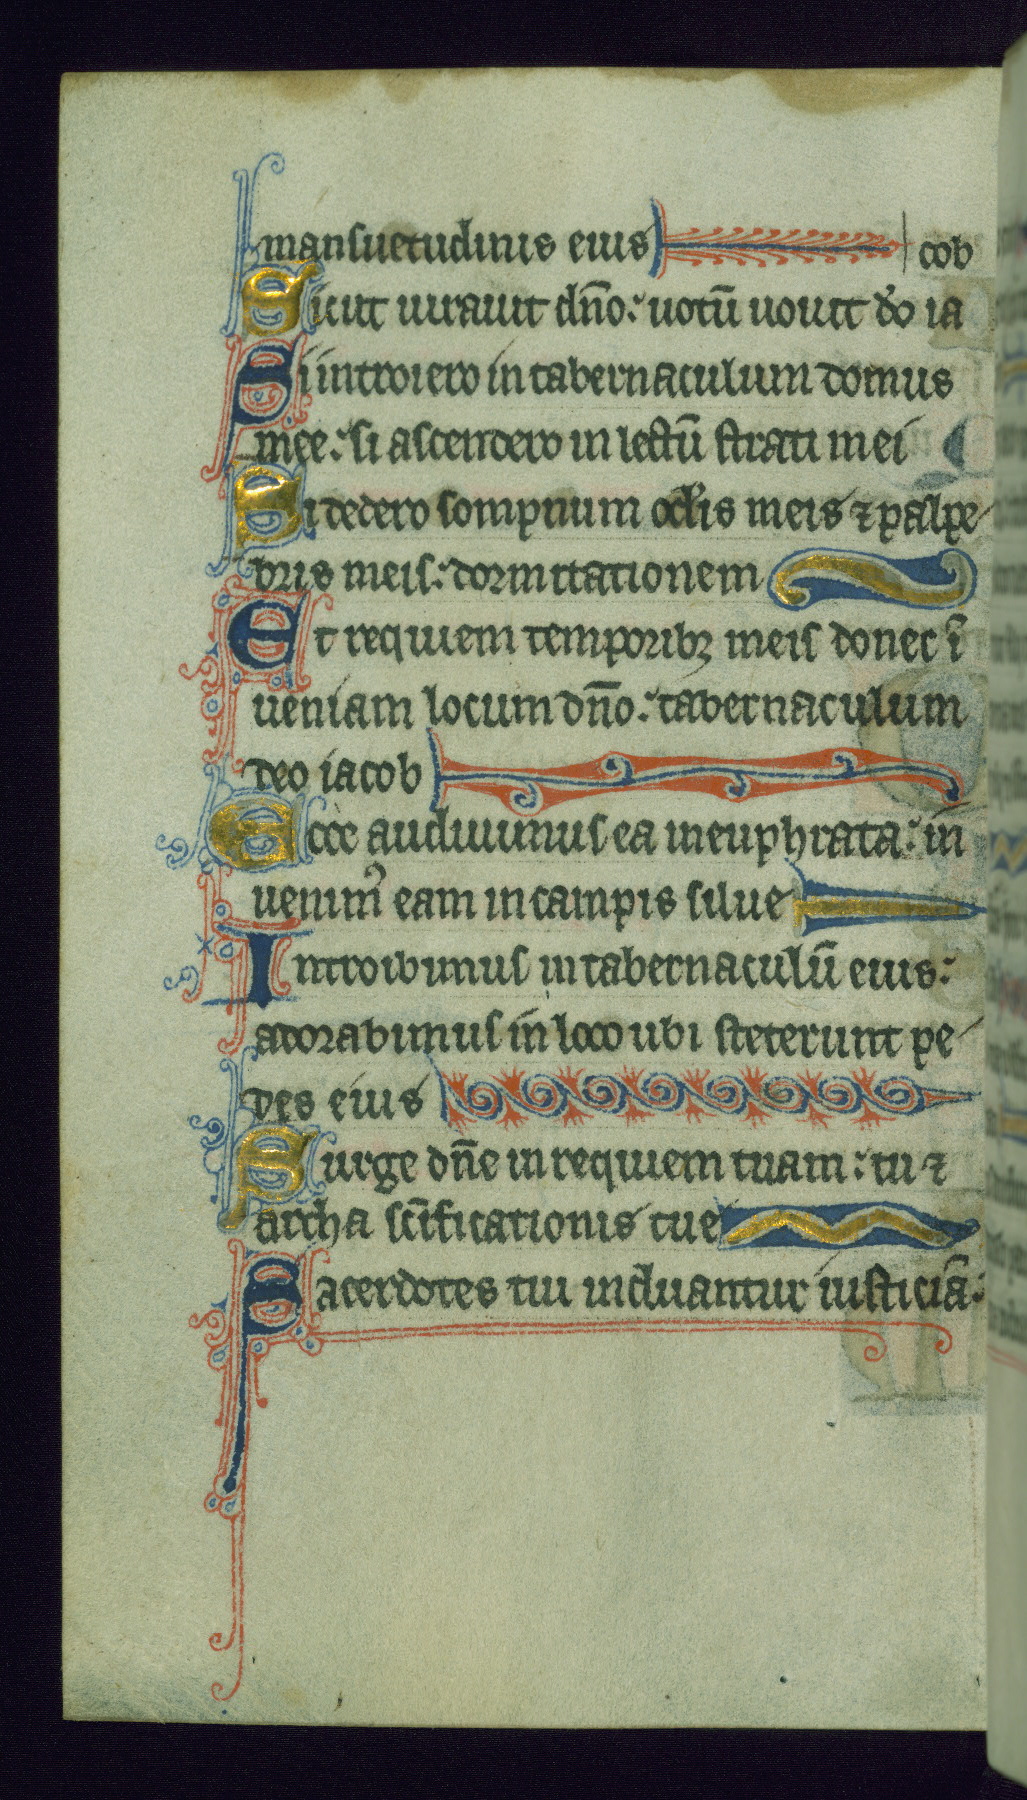 mansuetudinis eius cob
Sicut iurauit dn̄o: uotū uouit d̄o ia
Si introiero in tabernaculum domus
mee: si ascendero in lectū strati mei
Si dedero sompnum oclis meis ⁊ palpe
bris meis: dormitationem
Et requiem temporibꝫ meis donec ī
ueniam locum dn̄o: tabernaculum
deo iacob
Ecce audiuimus ea in euphrata: in
uenim᾿ eam in campis silue
Introibimus in tabernaculū eius:
adorabimus in loco ubi steterunt pe
des eius
Surge dn̄e in requiem tuam: tu ⁊
archa sc̄ificationis tue
Sacerdotes tui induantur iusticiā: